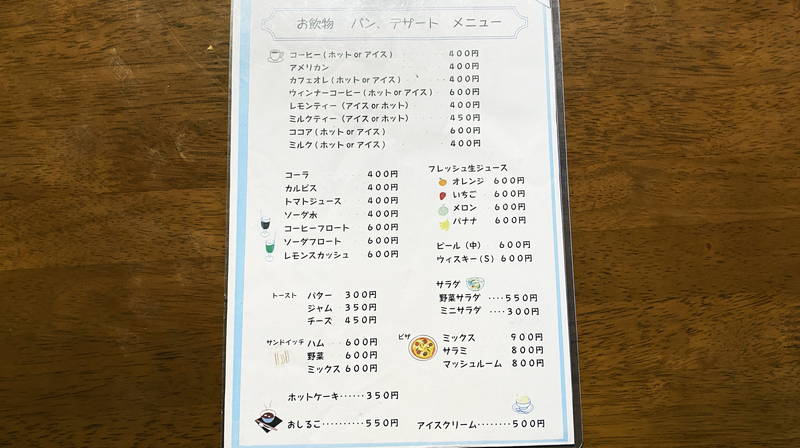 お飲物 パン、デザート メニュー
コーヒー(ホット or アイス) 400円
アメリカン 400円
カフェオレ(ホット or アイス) 400円
ウィンナーコーヒー(ホット or アイス) 600円
レモンティー(アイス or ホット) 400円
ミルクティー(アイス or ホット) 450円
ココア(ホット or アイス) 600円
ミルク(ホット or アイス) 400円
コーラ 400円
カルピス 400円
トマトジュース 400円
ソーダ水 400円
コーヒーフロート 600円
ソーダフロート 600円
レモンスカッシュ 600円
フレッシュ生ジュース
オレンジ 600円
いちご 600円
メロン 600円
バナナ 600円
ビール(中) 600円
ウィスキー(S) 600円
サラダ
野菜サラダ ････550円
ミニサラダ ････300円
トースト バター 300円
ジャム 350円
チーズ 450円
サンドイッチ ハム 600円
野菜 600円
ミックス 600円
ピザ ミックス 900円
サラミ 800円
マッシュルーム 800円
ホットケーキ･･････350円
おしるこ･･････････550円
アイスクリーム････････500円